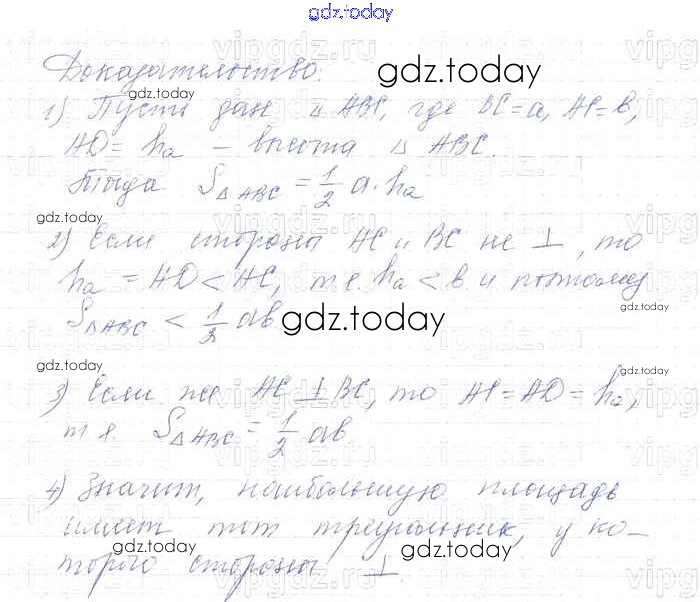 gdz.today
Доказательство.
gdz.today
1) Пусть дан △ ABC, где BC = a, AC = b,
AD = hₐ – высота △ ABC.
Тогда S△ABC = 1/2 a · hₐ
gdz.today
2) Если стороны AC и BC не ⊥, то
hₐ = AD < AC, т.е. hₐ < b и потому
S△ABC < 1/2 ab
gdz.today
gdz.today
gdz.today
gdz.today
3) Если же AC ⊥ BC, то AC = AD = hₐ,
т.е. S△ABC = 1/2 ab
4) Значит, наибольшую площадь
имеет тот треугольник, у ко-
gdz.today
gdz.today
торого стороны ⊥.